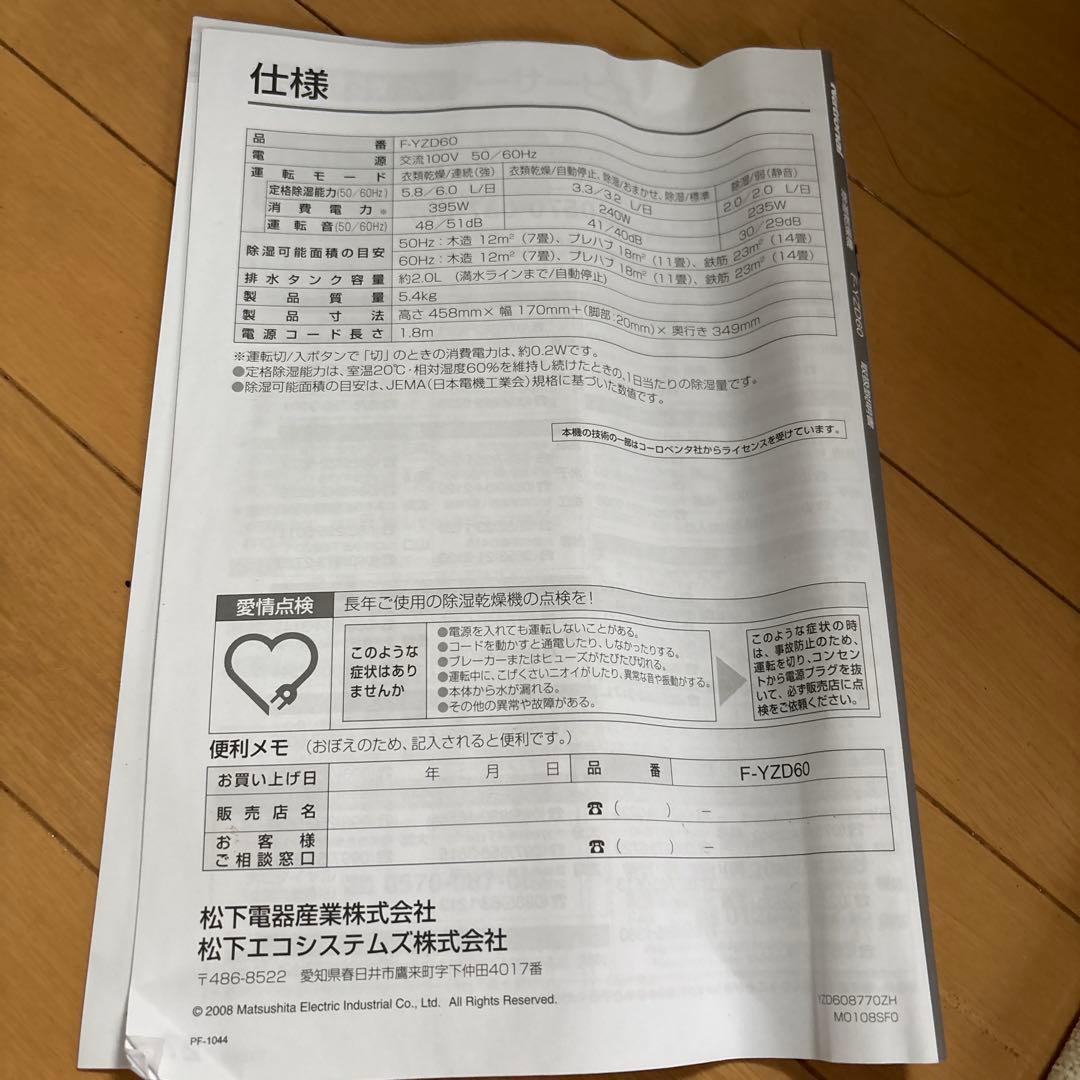 仕様
品番 F-YZD60
電源 交流100V 50/60Hz
運転モード 衣類乾燥/連続(強) 衣類乾燥/自動停止、除湿/おまかせ、除湿/標準 除湿/弱(静音)
定格除湿能力(50/60Hz) 5.8/6.0 L/日 3.3/3.2 L/日 2.0/2.0 L/日
消費電力※ 395W 240W 235W
運転音(50/60Hz) 48/51dB 41/40dB 30/29dB
除湿可能面積の目安 50Hz:木造 12m²(7畳)、プレハブ 18m²(11畳)、鉄筋 23m²(14畳)
60Hz:木造 12m²(7畳)、プレハブ 18m²(11畳)、鉄筋 23m²(14畳)
排水タンク容量 約2.0L (満水ラインまで/自動停止)
製品質量 5.4kg
製品寸法 高さ 458mm×幅 170mm+(脚部:20mm)×奥行き 349mm
電源コード長さ 1.8m
※運転切/入ボタンで「切」のときの消費電力は、約0.2Wです。
●定格除湿能力は、室温20℃・相対湿度60%を維持し続けたときの、1日当たりの除湿量です。
●除湿可能面積の目安は、JEMA(日本電機工業会)規格に基づいた数値です。
本機の技術の一部はコーロベンタ社からライセンスを受けています。
愛情点検 長年ご使用の除湿乾燥機の点検を!
このような
症状はあり
ませんか
●電源を入れても運転しないことがある。
●コードを動かすと通電したり、しなかったりする。
●ブレーカーまたはヒューズがたびたび切れる。
●運転中に、こげくさいニオイがしたり、異常な音や振動がする。
●本体から水が漏れる。
●その他の異常や故障がある。
このような症状の時
は、事故防止のため、
運転を切り、コンセン
トから電源プラグを抜
いて、必ず販売店に点
検をご依頼ください。
便利メモ (おぼえのため、記入されると便利です。)
お買い上げ日 年 月 日 品番 F-YZD60
販売店名 ☎( ) −
お客様
ご相談窓口 ☎( ) −
松下電器産業株式会社
松下エコシステムズ株式会社
〒486-8522 愛知県春日井市鷹来町字下仲田4017番
© 2008 Matsushita Electric Industrial Co., Ltd. All Rights Reserved.
YZD608770ZH
M0108SF0
PF-1044
National
除湿乾燥機
F-YZD60
取扱説明書